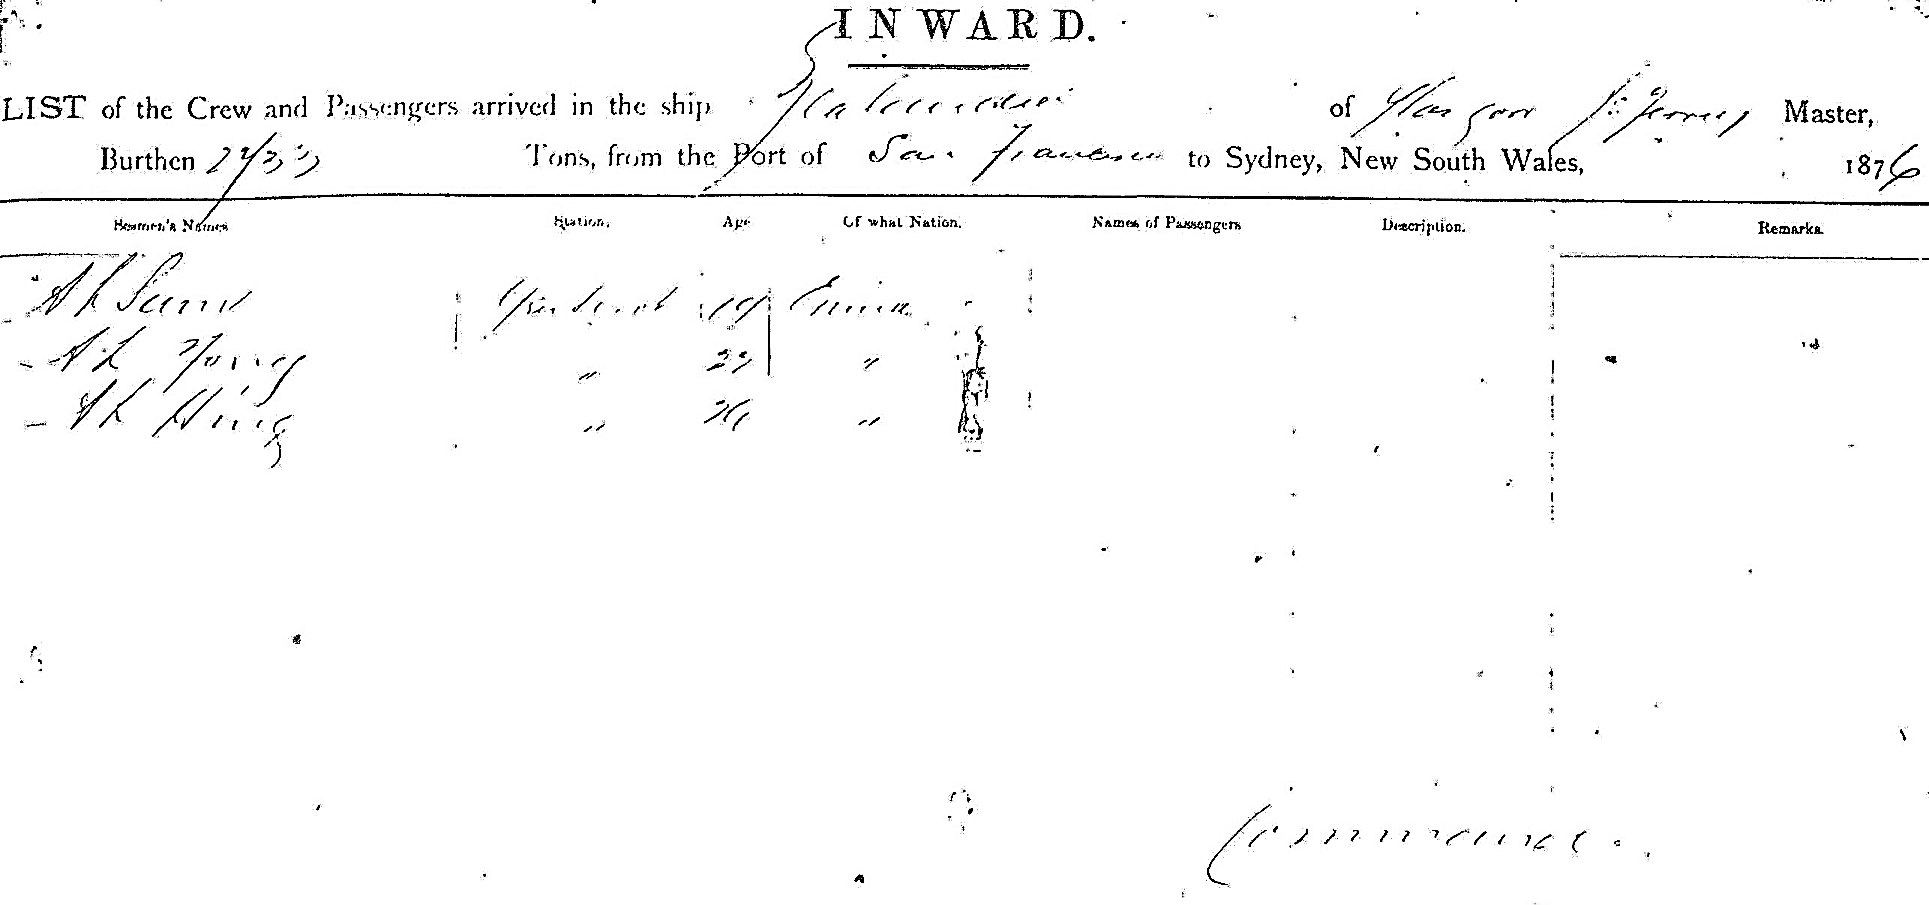 INWARD.
LIST of the Crew and Passengers arrived in the ship of Glasgow Master,
Burthen Tons, from the Port of San Francisco to Sydney, New South Wales, 1876
Seamen's Names Station. Age Of what Nation. Names of Passengers Description. Remarks.
Ah Sam 19 China
Ah Yong " 23 "
Ah Hing " 26 "
Commander.